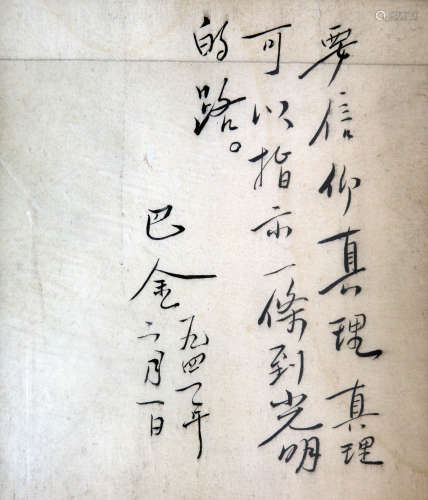 要信仰真理 真理
可以指示一條到光明
的路。
巴金
一九四一年
二月一日